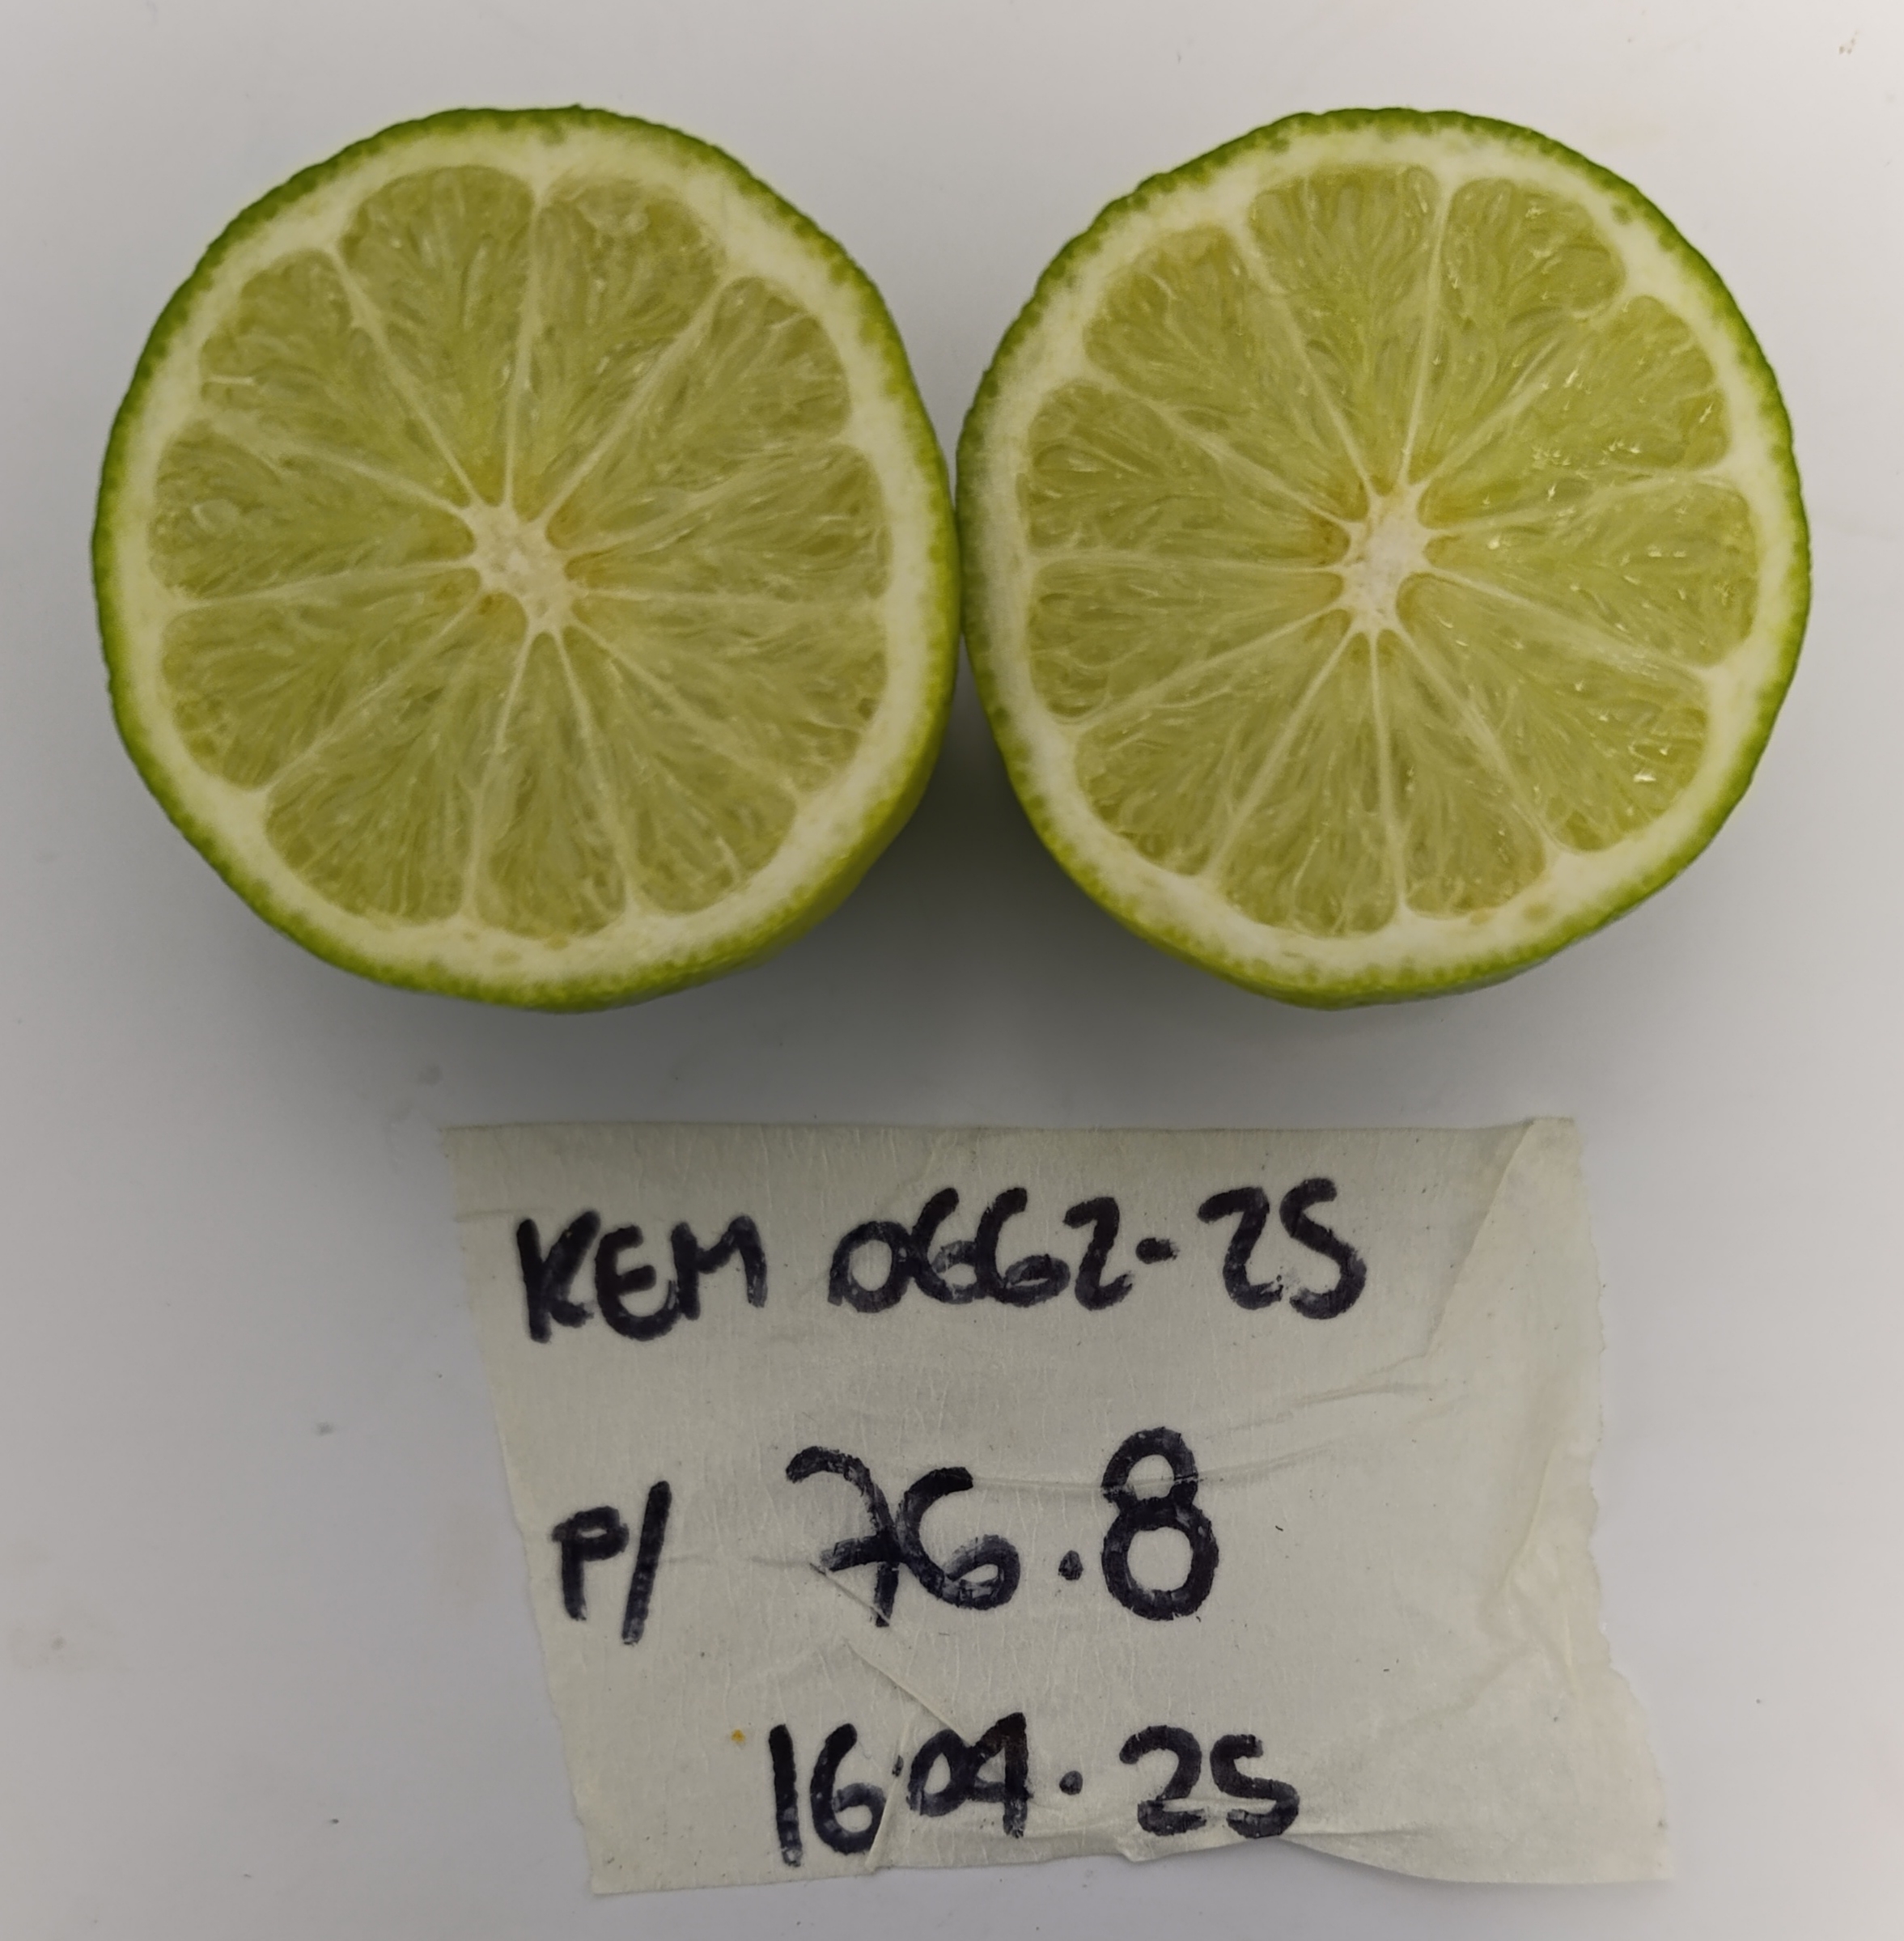 KEM 0662-25
P/ 76.8
16.04.25